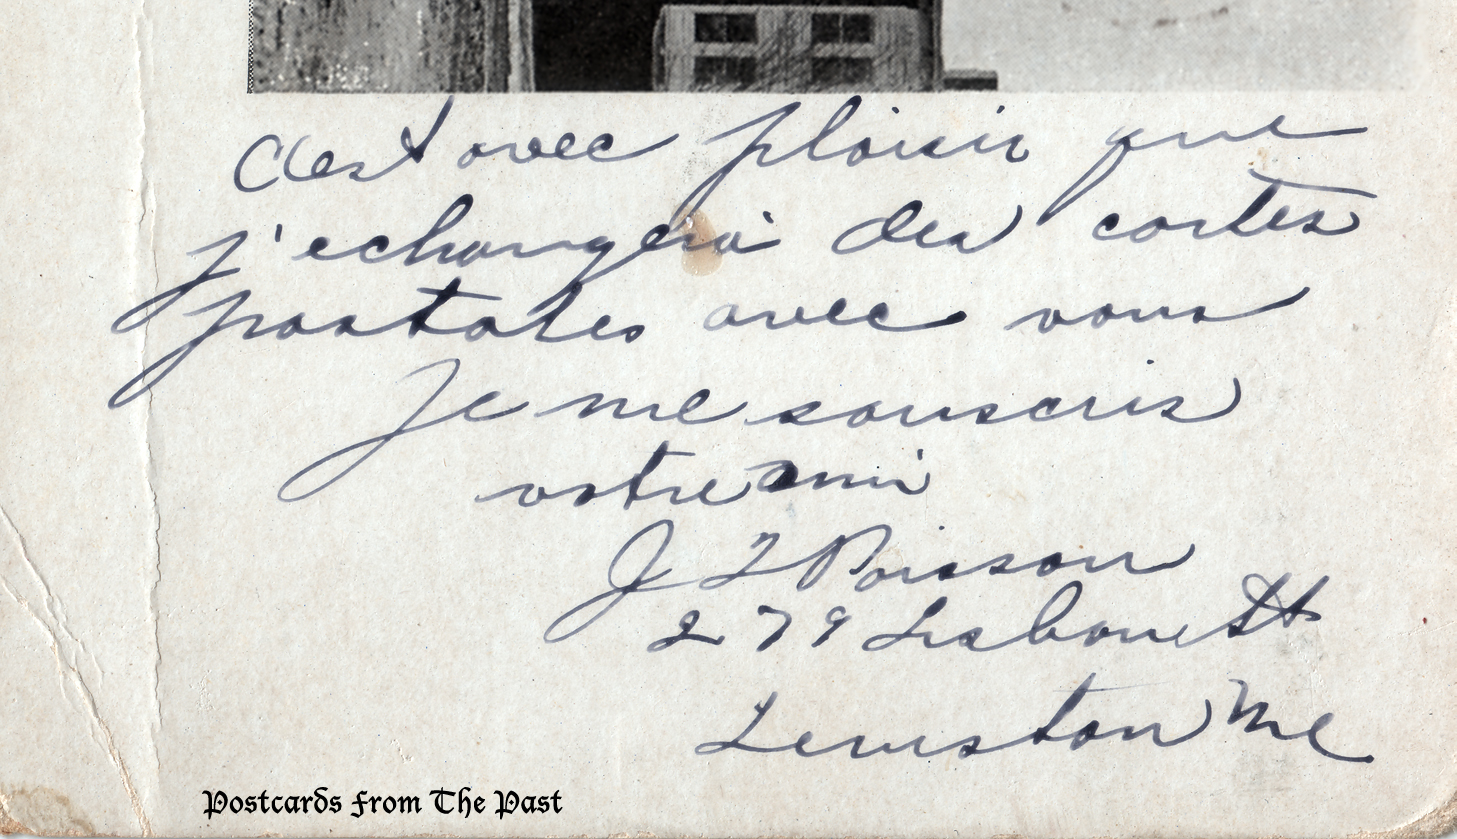 C'est avec plaisir que
j'echangerai des cartes
postales avec vous
Je me souscris
votre ami
J T Poisson
279 Lisbonne St
Lewiston Me
Postcards From The Past